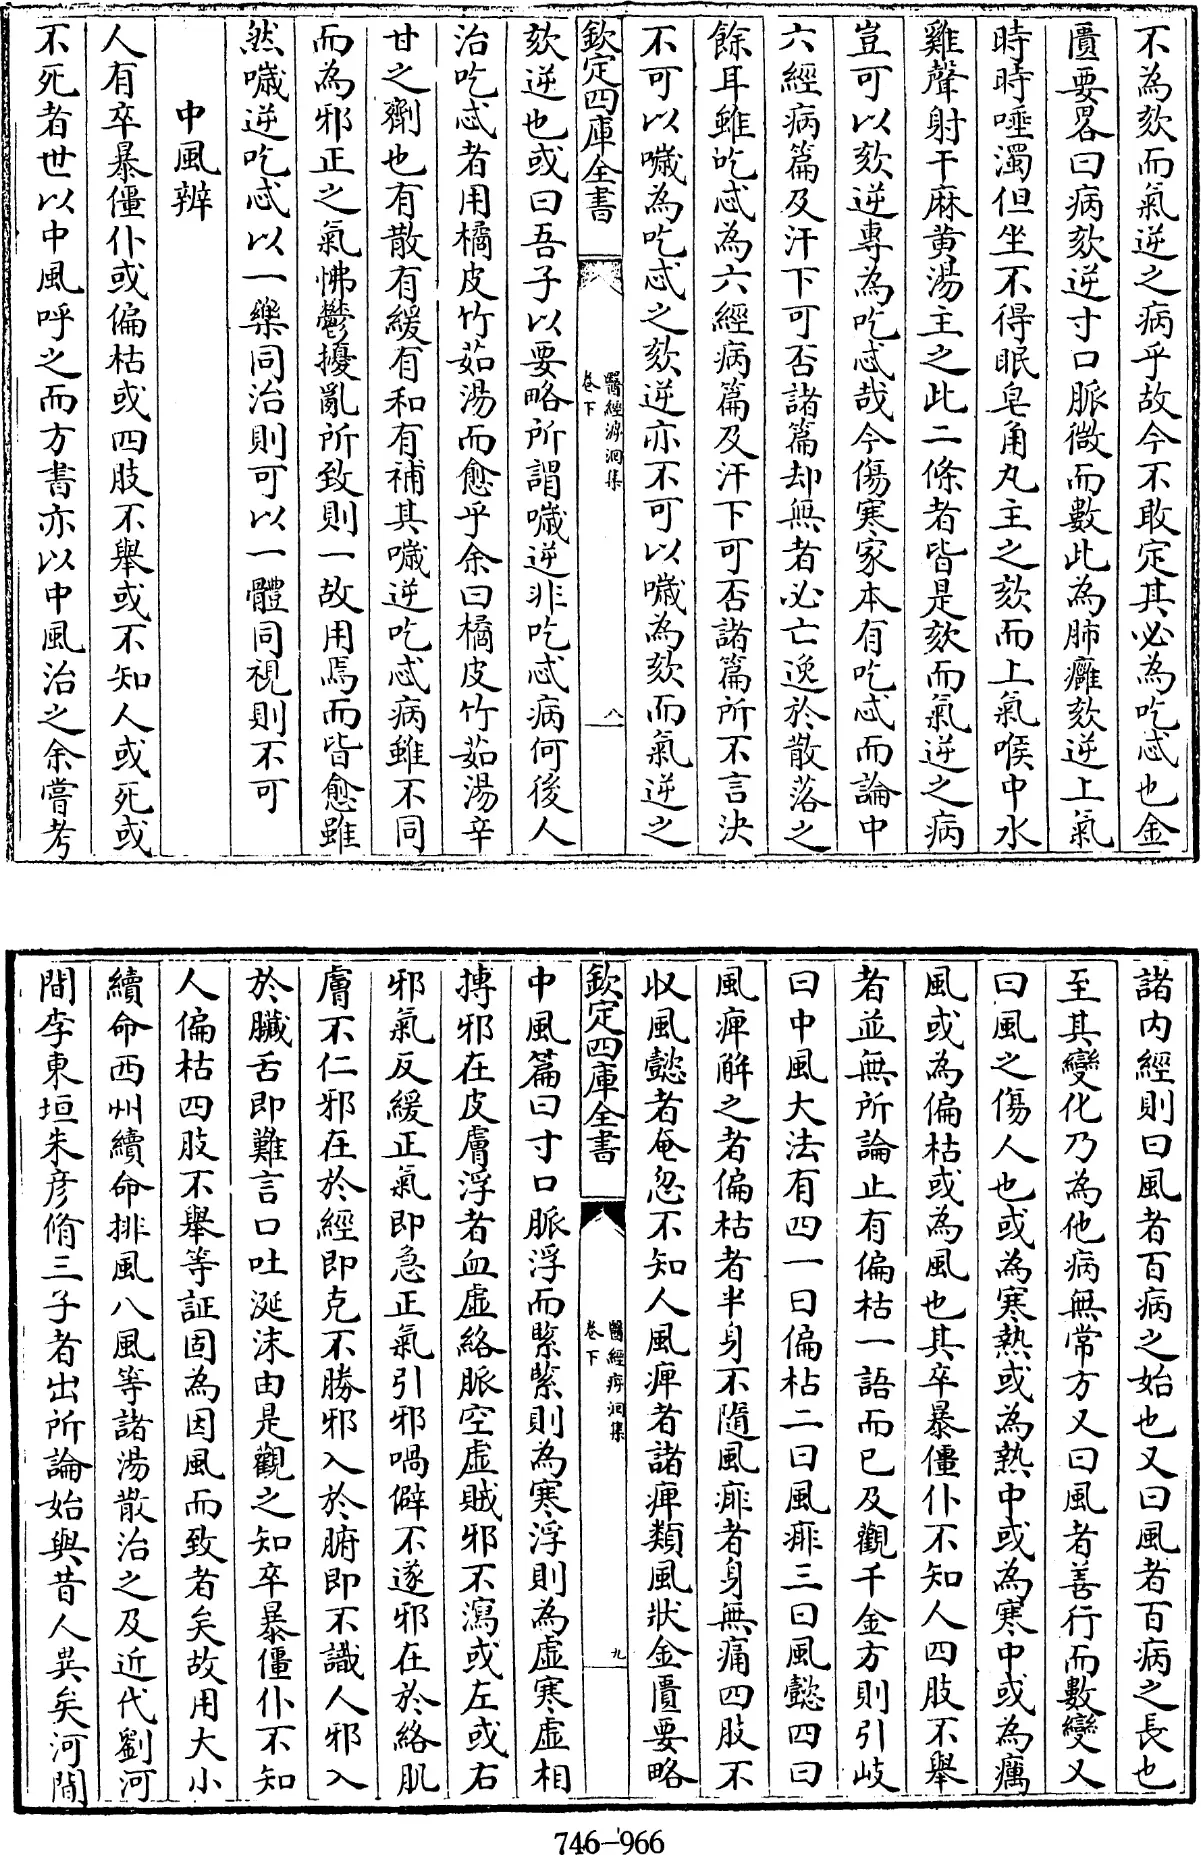 不為欬而氣逆之病乎故今不敢定其必為吃忒也金
匱要畧曰病欬逆寸口脈微而數此為肺癰欬逆上氣
時時唾濁但坐不得眠皂角丸主之欬而上氣喉中水
雞聲射干麻黄湯主之此二條者皆是欬而氣逆之病
豈可以欬逆專為吃忒哉今傷寒家本有吃忒而論中
六經病篇及汗下可否諸篇却無者必亡逸於散落之
餘耳雖吃忒為六經病篇及汗下可否諸篇所不言決
不可以噦為吃忒之欬逆亦不可以噦為欬而氣逆之
欽定四庫全書
醫經溯洄集
卷下
八
欬逆也或曰吾子以要略所謂噦逆非吃忒病何後人
治吃忒者用橘皮竹茹湯而愈乎余曰橘皮竹茹湯辛
甘之劑也有散有緩有和有補其噦逆吃忒病雖不同
而為邪正之氣怫鬱擾亂所致則一故用焉而皆愈雖
然噦逆吃忒以一藥同治則可以一體同視則不可
中風辨
人有卒暴僵仆或偏枯或四肢不舉或不知人或死或
不死者世以中風呼之而方書亦以中風治之余嘗考
諸内經則曰風者百病之始也又曰風者百病之長也
至其變化乃為他病無常方又曰風者善行而數變又
曰風之傷人也或為寒熱或為熱中或為寒中或為癘
風或為偏枯或為風也其卒暴僵仆不知人四肢不舉
者並無所論止有偏枯一語而已及觀千金方則引岐
曰中風大法有四一曰偏枯二曰風痱三曰風懿四曰
風痺解之者偏枯者半身不隨風痱者身無痛四肢不
收風懿者奄忽不知人風痺者諸痺類風狀金匱要略
欽定四庫全書
醫經溯洄集
卷下
九
中風篇曰寸口脈浮而緊緊則為寒浮則為虛寒虛相
搏邪在皮膚浮者血虛絡脈空虛賊邪不瀉或左或右
邪氣反緩正氣即急正氣引邪喎僻不遂邪在於絡肌
膚不仁邪在於經即克不勝邪入於腑即不識人邪入
於臟舌即難言口吐涎沫由是觀之知卒暴僵仆不知
人偏枯四肢不舉等証固為因風而致者矣故用大小
續命西州續命排風八風等諸湯散治之及近代劉河
間李東垣朱彦脩三子者出所論始與昔人異矣河間
746-966